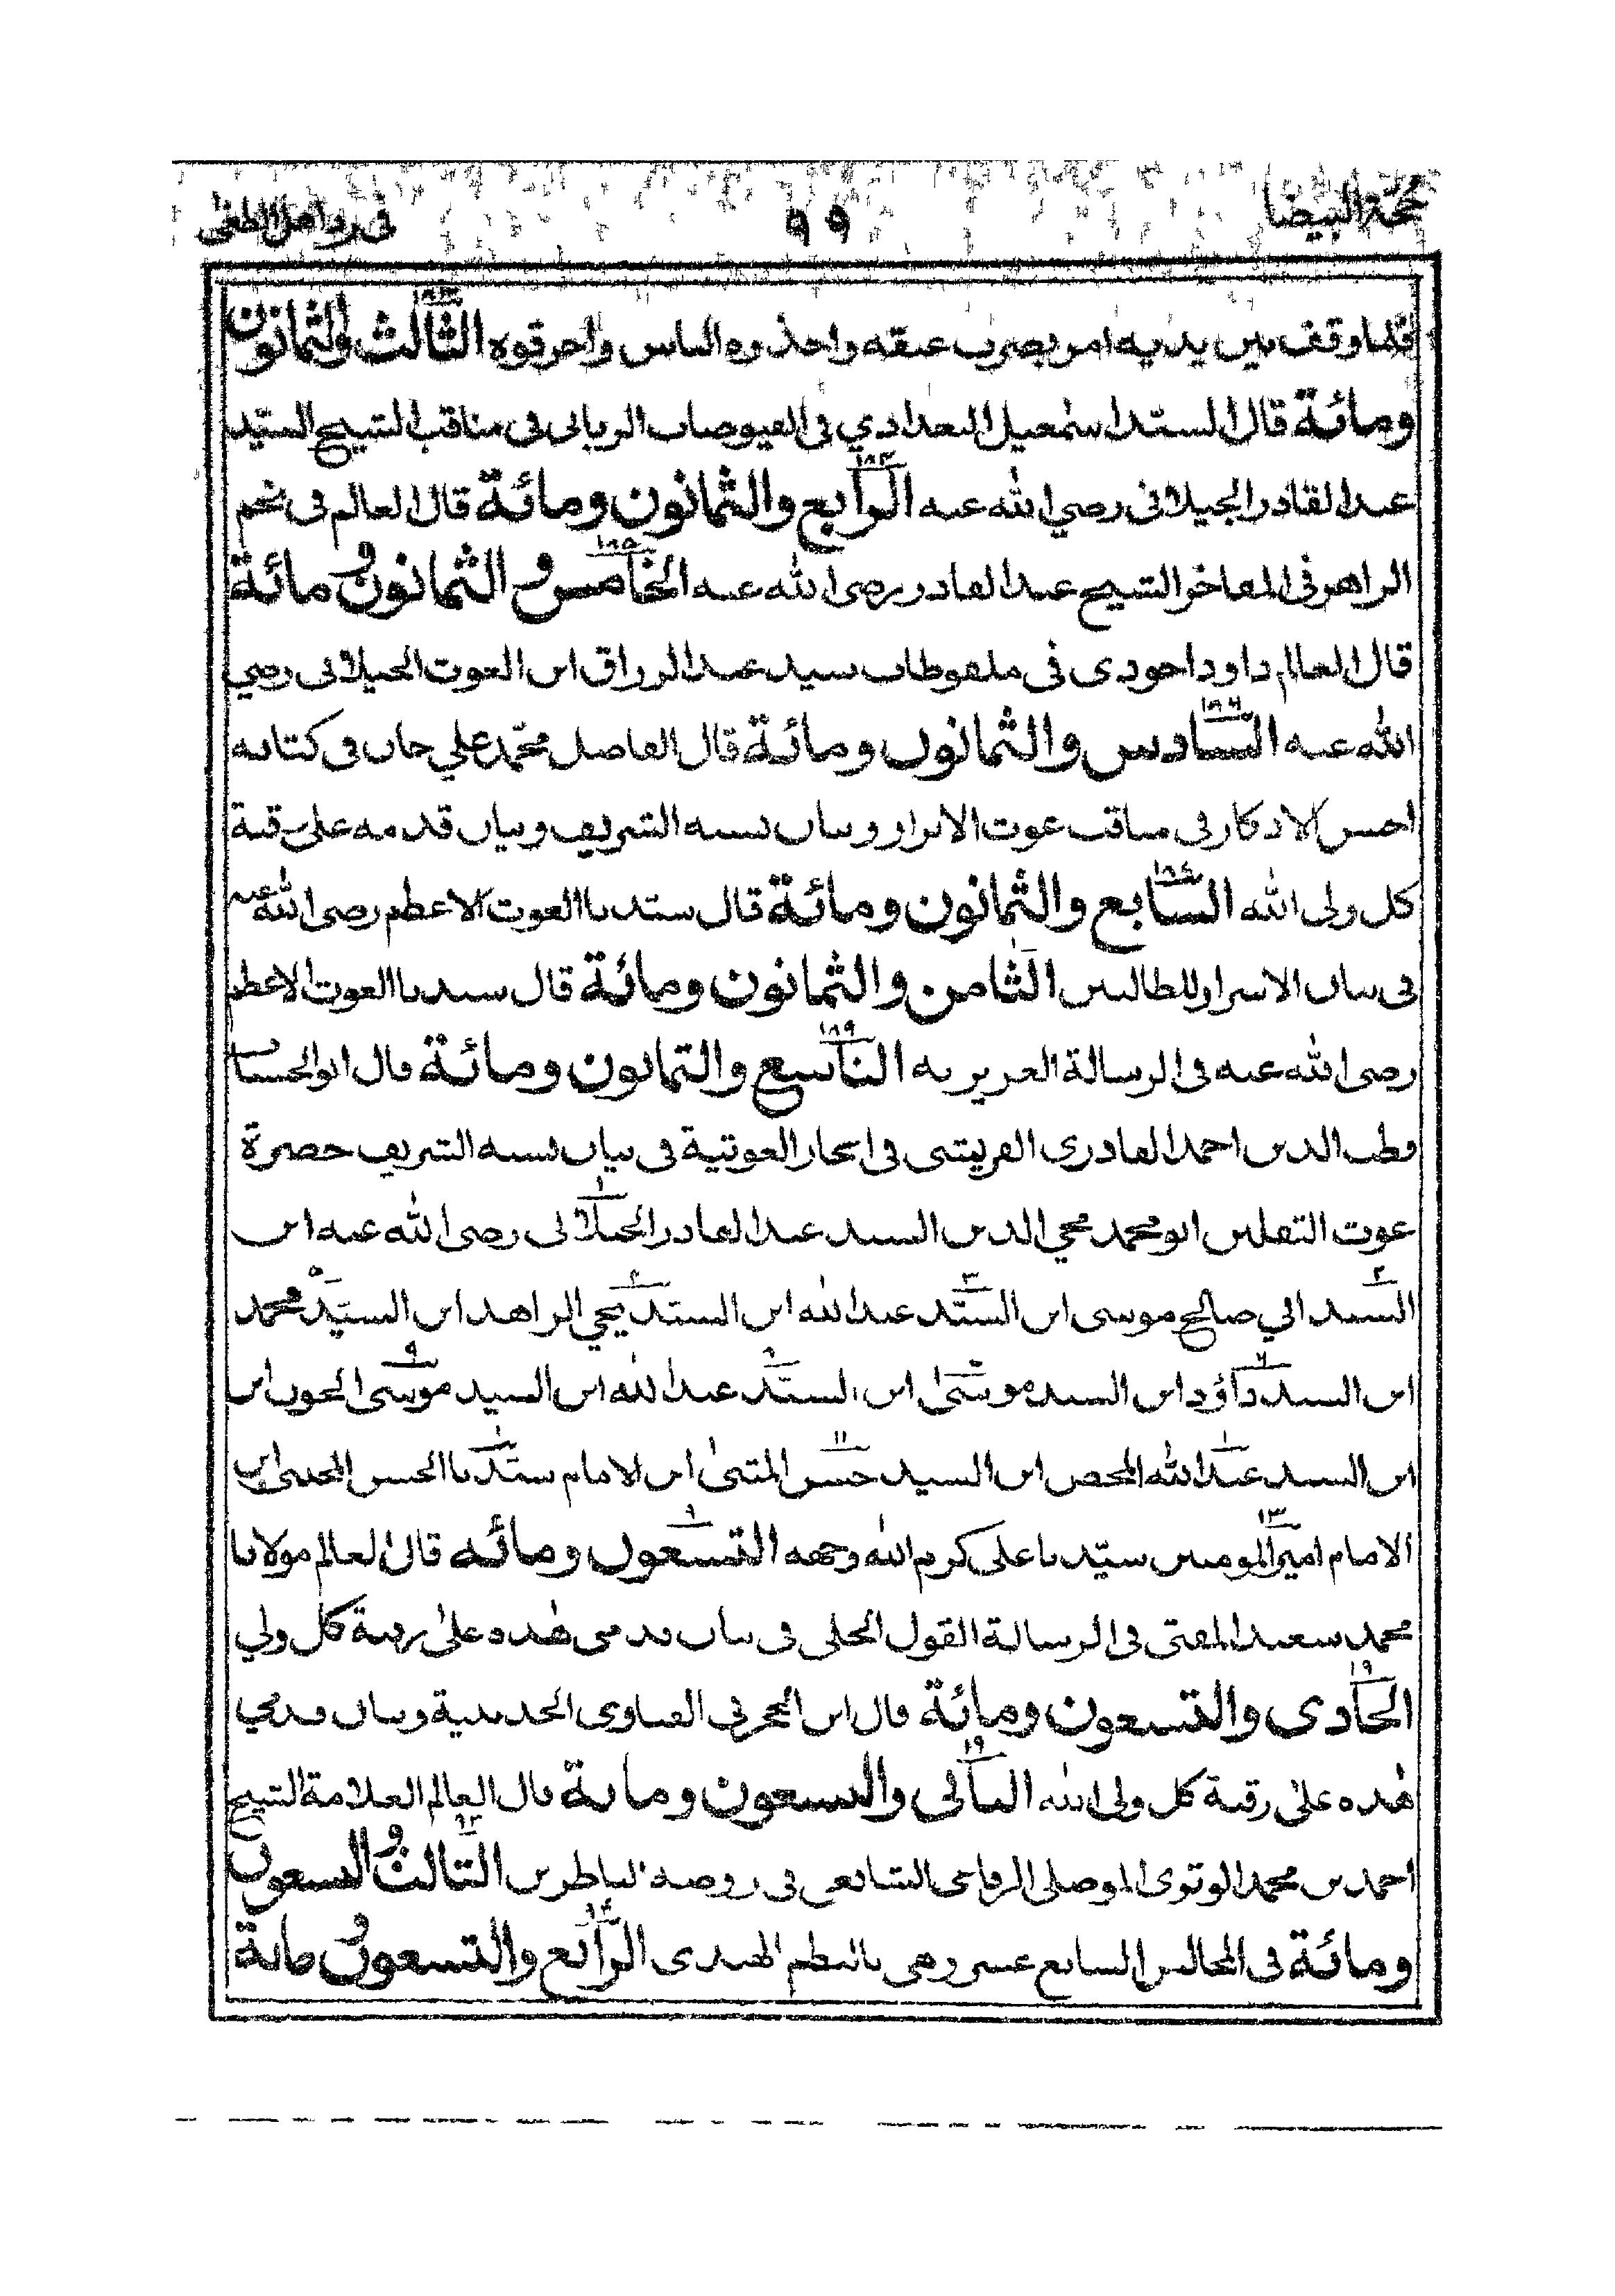 حجة البيضا ٩٩ في رد اهل الطغى
فلما وقف بين يديه امر بضرب عنقه واخذوه الناس واحرقوه الثالث والثمانون
ومائة قال السيد اسمعيل البغدادي في الفيوضات الرباني في مناقب الشيخ السيد
عبد القادر الجيلاني رضي الله عنه الرابع والثمانون ومائة قال العالم في نجم
الزاهر في المفاخر الشيخ عبد القادر رضى الله عنه الخامس والثمانون ومائة
قال العالم داود احودى في ملفوظات سيد عبد الرزاق ابن الغوث الجيلاني رضي
الله عنه السادس والثمانون ومائة قال الفاضل محمد علي خان في كتابه
احسن الاذكار في مناقب غوث الابرار وبيان نسبه الشريف وبيان قدمه على رقبة
كل ولى الله السابع والثمانون ومائة قال سيدنا الغوث الاعظم رضى الله عنه
في بيان الاسرار للطالبين الثامن والثمانون ومائة قال سيدنا الغوث الاعظم
رضى الله عنه في الرسالة العزيزيه التاسع والثمانون ومائة قال ابو الحسنات
قطب الدين احمد القادرى القريشى في ابحار الغوثية في بيان نسبه الشريف حضرة
غوث الثقلين ابو محمد محي الدين السيد عبد القادر الجيلاني رضى الله عنه ابن
السيد ابي صالح موسى ابن السيد عبد الله ابن السيد يحي الزاهد ابن السيد محمد
ابن السيد داؤد ابن السيد موسى ابن السيد عبد الله ابن السيد موسى الجون ابن
ابن السيد عبد الله المحض ابن السيد حسن المثنى ابن الامام سيدنا الحسن المجتبى ابن
الامام امير المومنين سيدنا على كريم الله وجهه التسعون ومائه قال العالم مولانا
محمد سعيد المفتى في الرسالة القول الجلى في بيان قدمى هذه على رقبة كل ولي
الحادى والتسعون ومائة قال ابن الحجر في الفتاوى الحديثية وبيان قدمي
هذه على رقبة كل ولى الله الثاني والتسعون ومائة قال العالم العلامة الشيخ
احمد بن محمد الوتوى الموصلى الرفاعى الشافعى في روضة الناظرين الثالث والتسعون
ومائة في المجالس السابع عشر وهى بالنظم الهندى الرابع والتسعون ومائة